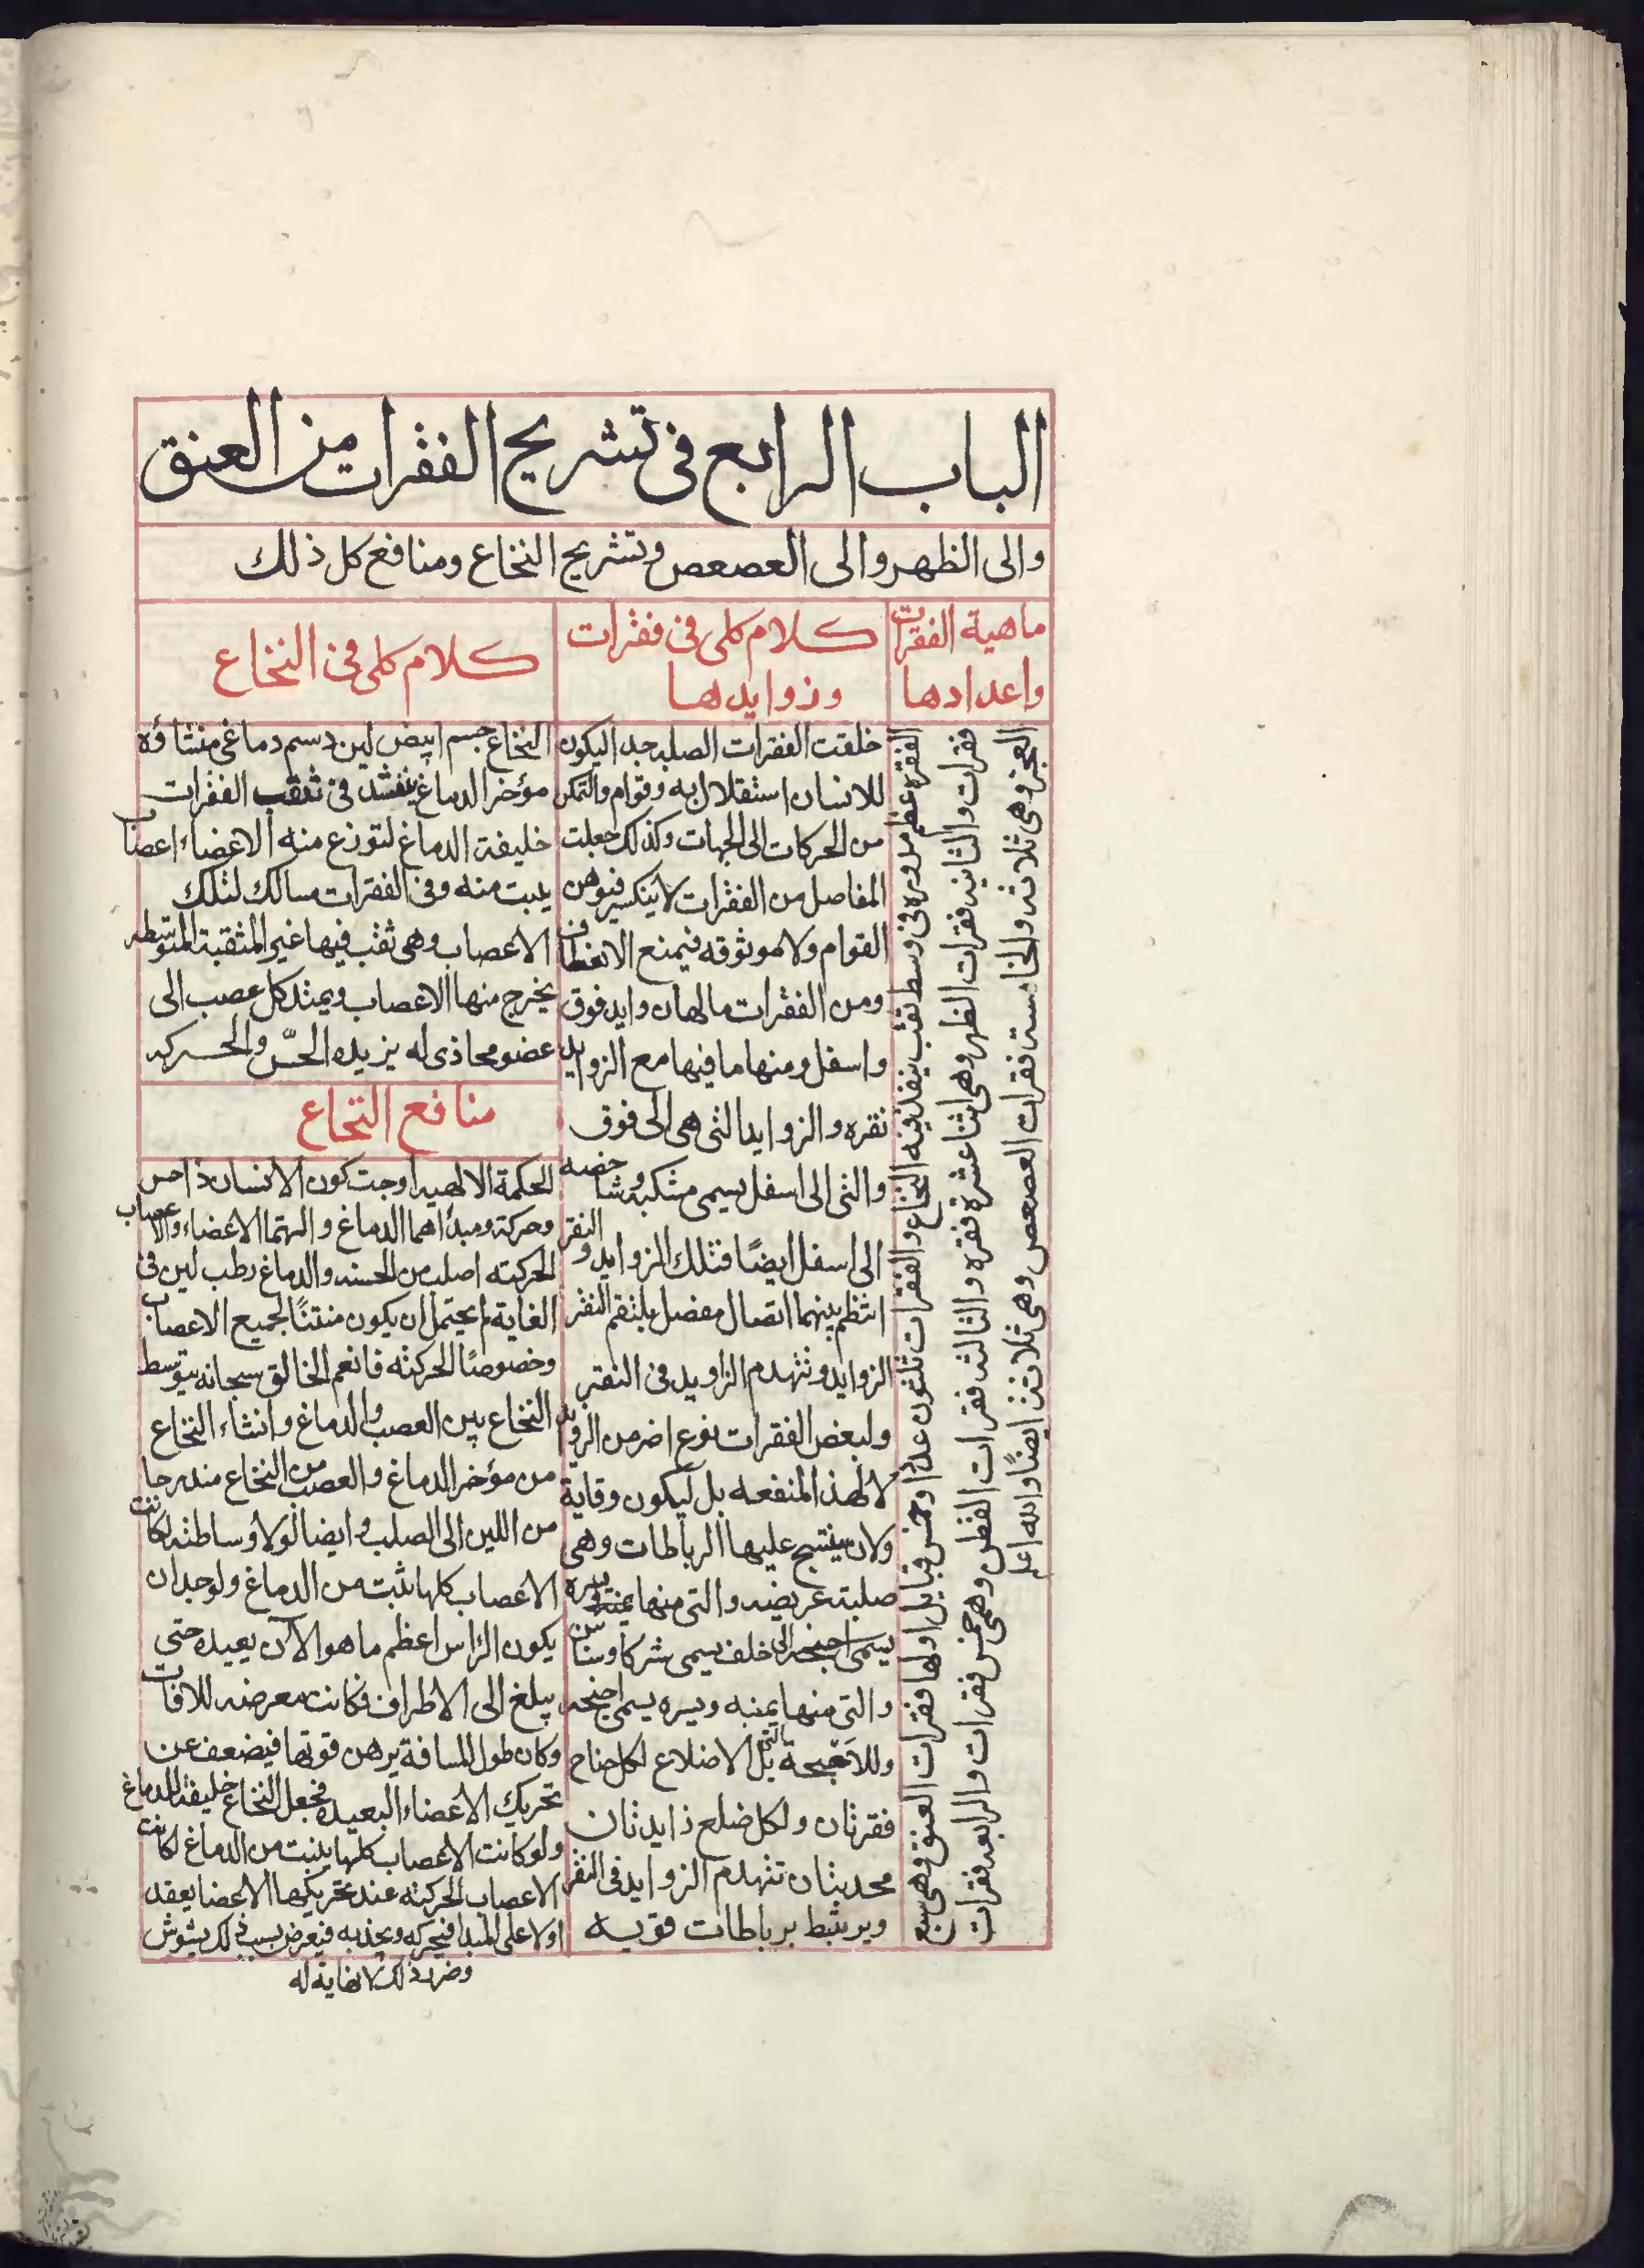 الباب الرابع فى تشريح الفقرات من العنق
والى الظهر والى العصعص وتشريح النخاع ومنافع كل ذلك
ماهية الفقرات
واعدادها
الفقره عظم مدوره فى وسط ثقب ينفذ فيه النخاع والفقرات ثلثون عدًا وخمس قبايل اولها فقرات العنق وهى سبع
فقرات والثانيه فقرات الظهر وهى اثنا عشرة فقره والثالثه فقرات القطن وهى خمس فقرات والرابعه فقرات
العجز وهى ثلاثه والخامسة فقرات العصعص وهى ثلاثة ايضًا والله اعلم
كلام كلى فى فقرات
وزوايدها
خلقت الفقرات الصلبه جدا ليكون
للانسان استقلال به وقوام والتمكن
من الحركات الى الجهات وكذلك جعلت
المفاصل من الفقرات لا ينكسر فيوهن
القوام ولا موثوقه فيمنع الانعطاف
ومن الفقرات ما لها زوايد فوق
واسفل ومنها ما فيها مع الزوايد
نقره والزوايد التى هى الى فوق
والتى الى اسفل يسمى منكبه وشاخصه
الى اسفل ايضًا فتلك الزوايد والنقر
انتظم بينهما اتصال مفصل يلتقم النقر
الزوايد وتهندم الزاويد فى النقر
ولبعض الفقرات نوع اخر من الزوايد
لا لهذ المنفعه بل ليكون وقاية
ولان ينتسج عليها الرباطات وهى
صلبة عريضه والتى منها يمنة ويسره
يسمى اجنحه الى خلف يسمى شركا وسناسن
والتى منها يمنه ويسره يسمى اجنحه
وللاجنحة التى الاضلاع لكل جناح
فقرتان ولكل ضلع زايدتان
محدبتان تتهندم الزوايد فى النقر
ويرتبط برباطات قويه
كلام كلى فى النخاع
النخاع جسم ابيض لين دسم دماغى منشاؤه
مؤخر الدماغ ينفذ فى ثقب الفقرات
خليفة الدماغ لتوزع منه الاعضاء اعصاب
ينبت منه وفى الفقرات مسالك لتلك
الاعصاب وهى ثقب فيها غير المثقبة المتوسطه
يخرج منها الاعصاب ويمتد كل عصب الى
عضو محاذى له يزيده الحسّ والحركه
منافع النخاع
الحكمة الالهيه اوجبت كون الانسان ذا حس
وحركة ومبدأهما الدماغ والتهما الاعضاء والاعصاب
الحركيه اصلب من الحسيه والدماغ رطب لين فى
الغاية لم يحتمل ان يكون منبتًا لجميع الاعصاب
وخصوصًا الحركيه فانعم الخالق سبحانه بتوسط
النخاع بين العصب والدماغ وانشاء النخاع
من مؤخر الدماغ والعصب من النخاع مندرجا
من اللين الى الصلب وايضا لولا وساطته لكانت
الاعصاب كلها نبت من الدماغ ولوجب ان
يكون الراس اعظم ما هو الآن بعيده حتى
يبلغ الى الاطراف فكانت معرضه للافات
وكان طول المسافة يوهن قوتها فيضعف عن
تحريك الاعضاء البعيده فجعل النخاع خليفة للدماغ
ولو كانت الاعصاب كلها ينبت من الدماغ لكانت
الاعصاب الحركيه عند تحريكها الاعضا يعقد
اولا على المبدا فيحركه ويجذبه فيعرض بسبب ذلك يشوش
وضرر ذلك لا نهاية له